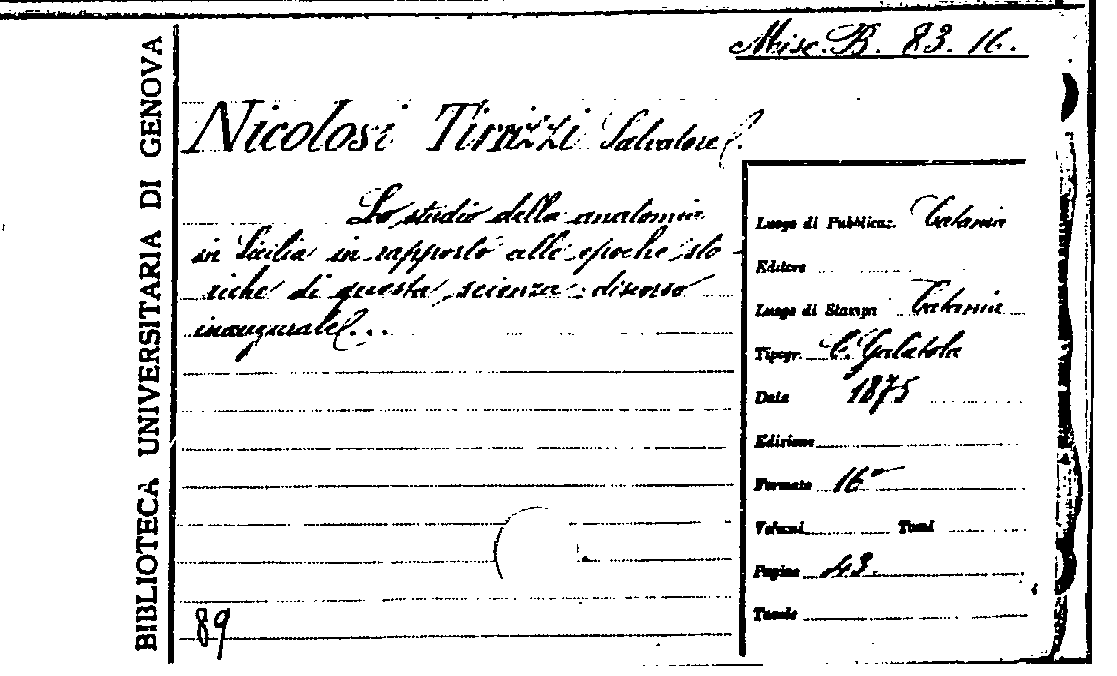 BIBLIOTECA UNIVERSITARIA DI GENOVA
Misc. B. 83. 16.
Nicolosi Tirrizzi Salvatore.
Lo studio della anatomia
in Sicilia in rapporto alle epoche sto-
riche di questa scienza: discorso
inaugurale...
89
Luogo di Pubblicaz. Catania
Editore
Luogo di Stampa Catania
Tipogr. C. Galatola
Data 1875
Edizione
Formato 16°
Volumi Tomi
Pagine 43.
Tavole